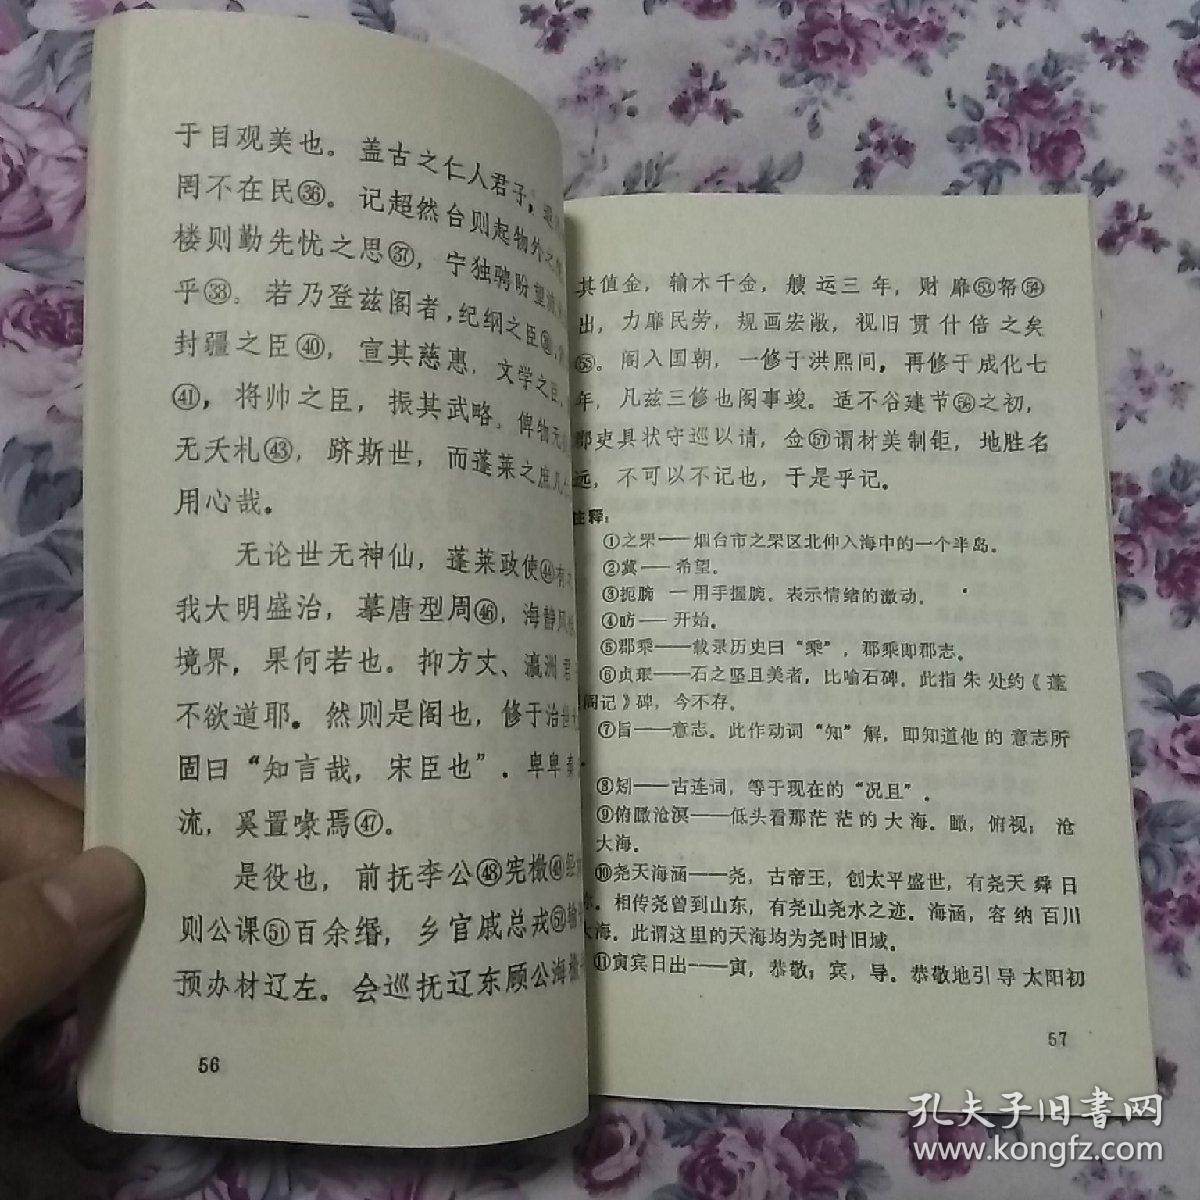 于目观美也。盖古之仁人君子，
罔不在民㊱。记超然台则起物外之
楼则勤先忧之思㊲，宁独骋盼望
乎㊳。若乃登兹阁者，纪纲之臣㊴，
封疆之臣㊵，宣其慈惠，文学之臣，
㊶，将帅之臣，振其武略，俾物无
无夭札㊸，跻斯世，而蓬莱之庶几
用心哉。
无论世无神仙，蓬莱政使㊹有
我大明盛治，摹唐型周㊻，海静风
境界，果何若也。抑方丈、瀛洲君
不欲道耶。然则是阁也，修于治世
固曰“知言哉，宋臣也”．卑卑秦
流，奚置喙焉㊼。
是役也，前抚李公㊽宪檄㊾经
则公课(51)百余缗，乡官戚总戎㊿输
预办材辽左。会巡抚辽东顾公海檄
56
其值金，输木千金，艘运三年，财廊(53)帑(54)
出，力靡民劳，规画宏敞，视旧贯什倍之矣
(55)。阁入国朝，一修于洪熙间，再修于成化七
年，凡兹三修也阁事竣。适不谷建节(56)之初，
郡吏具状守巡以请，佥(57)谓材美制钜，地胜名
远，不可以不记也，于是乎记。
注释：
①之罘——烟台市之罘区北伸入海中的一个半岛。
②冀——希望。
③扼腕 一用手握腕。表示情绪的激动。
④昉——开始。
⑤郡乘——载录历史曰“乘”，郡乘即郡志。
⑥贞珉——石之坚且美者，比喻石碑。此指朱处约《蓬
阁记》碑，今不存。
⑦旨——意志。此作动词“知”解，即知道他的意志所
⑧矧——古连词，等于现在的“况且”．
⑨俯瞰沧溟——低头看那茫茫的大海。瞰，俯视；沧
大海。
⑩尧天海涵——尧，古帝王，创太平盛世，有尧天舜日
。相传尧曾到山东，有尧山尧水之迹。海涵，容纳百川
大海。此谓这里的天海均为尧时旧域。
⑪寅宾日出——寅，恭敬；宾，导。恭敬地引导太阳初
57
孔夫子旧书网
www.kongfz.com